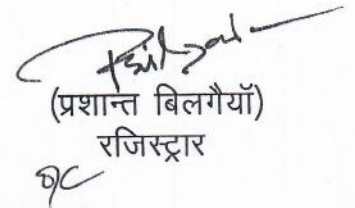 (प्रशान्त बिलगैयॉ)
रजिस्ट्रार